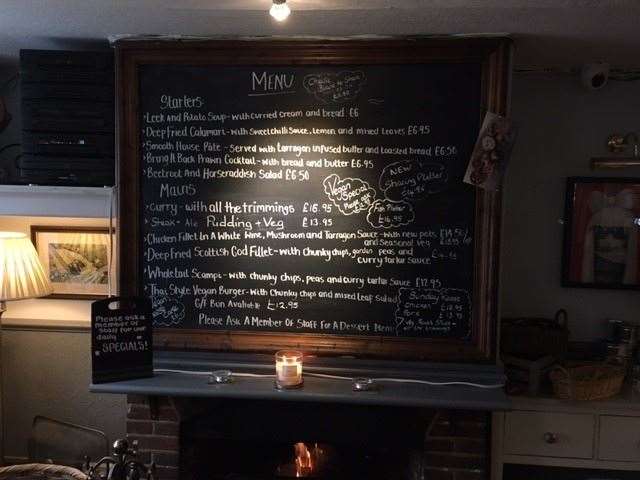 MENU
Starters
Leek And Potato Soup - with curried cream and bread £6
Deep Fried Calamari - with Sweet chilli Sauce, Lemon and mixed leaves £6.95
Smooth House Pâte - Served with tarragon infused butter and toasted bread £6.50
Bring It Back Prawn Cocktail - with bread and butter £6.95
Beetroot And Horseraddish Salad £6.50
NEW
Sharing Platter
Mains
Vegan
Special
Please ask
Fish Platter
£16.95
Curry - with all the trimmings £16.95
Steak + Ale Pudding + Veg £13.95
Chicken Fillet In A White Wine, Mushroom and Tarragon Sauce - With new pots
and Seasonal veg
Deep Fried Scottish Cod Fillet - with Chunky chips, garden peas and
curry tartar sauce
Wholetail Scampi - with chunky chips, peas and curry tartar sauce £12.95
Thai Style Vegan Burger - With Chunky chips and mixed leaf Salad
G/F Bun Available £12.95
Sunday Roasts
Chicken
Pork
Please Ask A Member Of Staff For A Dessert Menu
Please ask a
member of
staff for our
daily
SPECIALS!